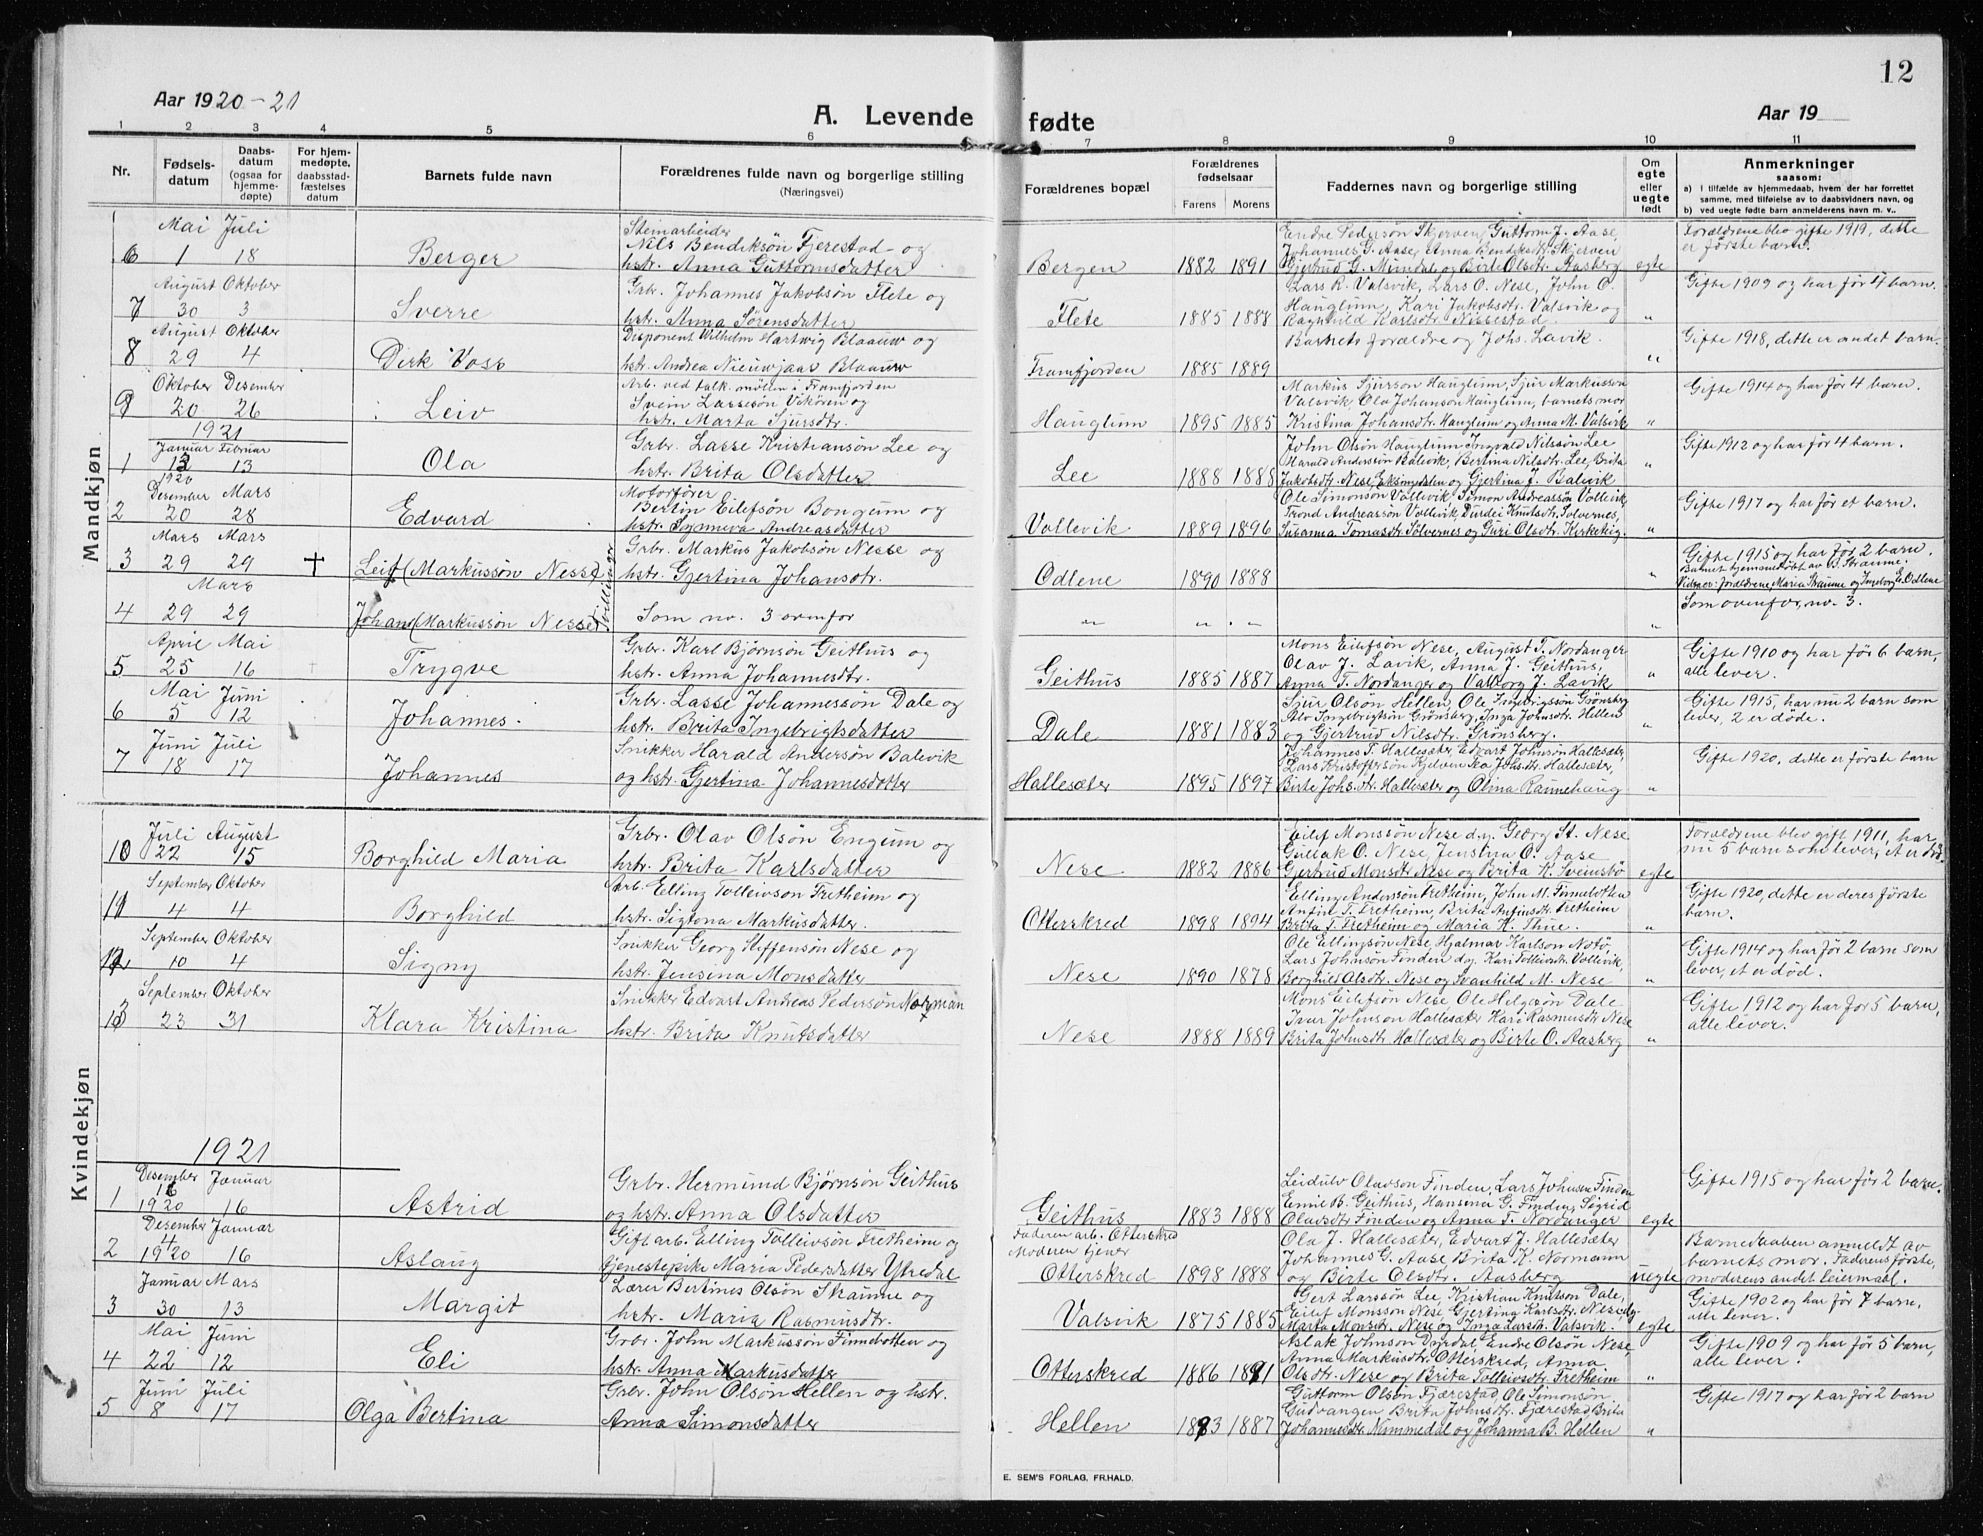 12
Aar 1920-21
A. Levende fødte
Aar 19
1 2 3 4 5 6 7 8 9 10 11
Nr.
Fødsels-datum
Daabs-datum (ogsaa for hjemme-døpte)
For hjem-medøpte, daabsstad-fæstelses datum
Barnets fulde navn
Forældrenes fulde navn og borgerlige stilling
(Næringsvei)
Forældrenes bopæl
Forældrenes fødselsaar
Farens Morens
Faddernes navn og borgerlige stilling
Om egte eller uegte født
Anmerkninger
saasom:
a) I tilfælde av hjemmedaab, hvem der har forrettet samme, med tilføielse av to daabsvidners navn, og
b) ved uegte fødte barn anmelderens navn m. v.,
Mandkjøn
Mai Juli
6 1 18 Berger
Steinarbeider
Nils Bendiksøn Fjerestad og
hstr. Anna Guttormsdatter
Bergen 1882 1891
Endre Pederson Skjerven, Guttorm J. Aase,
Johannes G. Aase, Anna Bendiksdtr. Skjerven
Gjertrud G. Mundal og Birte Olsdtr. Aasberg
egte
Forældrene blev gifte 1919, dette
er første barn.
August Oktober
7 30 3 Sverre
Grbr. Johannes Jakobsøn Flete og
hstr. Anna Sørensdatter
Flete 1885 1888
Lars R. Valsvik, Lars O. Nese, John O.
Hauglum, Kari Jakobsdtr. Valsvik og
Raghild Karlsdtr. Nissestad.
"
Gifte 1909 og har før 4 barn.
August Oktober
8 29 4 Dirk Voss
Disponent Wilhelm Hartwig Blaauw og
hstr. Andrea Nieuwjaas Blaauw
Framfjorden 1885 1889
Barnets forældre og Johs. Lavik.
"
Gifte 1918, dette er andet barn.
Oktober Desember
9 20 26 Leiv
Arb. ved talk. møllen i Framfjorden
Svein Lassesøn Vikøren og
hstr. Marta Sjursdtr.
Hauglum 1895 1885
Markus Sjurson Hauglum, Sjur Markusson
Valsvik, Ola Johanson Hauglum, barnets mor
Kristina Johansdtr. Hauglum og Anna M. Valsvik
"
Gifte 1914 og har før 4 barn.
1921
Januar Februar
1 13 13 Ola
Grbr. Lasse Kristiansøn Lee og
hstr. Brita Olsdatter
Lee 1888 1888
John Olsøn Hauglum, Ingvald Nilssøn Lee
Harald Anderssøn Balevik, Bertina Nilsdtr. Lee, Brita
Jakobsdtr. Nese, Eksingdalen og Gjertina J. Balevik
"
Gifte 1912 og har før 4 barn.
1920
Desember Mars
2 20 28 Edvard
Motorfører
Bertin Eilefsøn Bongum og
hstr. Synneva Andreasdatter
Vollevik 1889 1896
Ole Simonsøn Vollevik, Simon Andreassøn Vollevik,
Trond Andreassøn Vollevik, Durdei Knutsdtr. Solvernes,
Susanna Tomasdtr. Solvernes og Guri Olsdtr. Kirkeeig.
"
Gifte 1917 og har før et barn.
Mars Mars
3 29 29 † Leif (Markussøn Nesse)
tvillinger
Grbr. Markus Jakobsøn Nesse og
hstr. Gjertina Johansdtr.
Odlene 1890 1888
"
Gifte 1915 og har før 2 barn.
Barnet hjemmedøbt av B. Straume.
Vidner: forældrene, Maria Straume og Ingeborg E. Odlene
Mars
4 29 29 Johan (Markussøn Nesse)
Som nr. 3 ovenfor
" " "
"
Som ovenfor, nr. 3.
April Mai
5 25 16 Trygve
Grbr. Karl Bjørnsøn Geithus og
hstr. Anna Johannesdtr.
Geithus 1885 1887
Mons Eilefsøn Nese, August T. Nordanger
Olav J. Lavik, Anna J. Geithus,
Anna T. Nordanger og Valborg J. Lavik
"
Gifte 1910 og har før 6 barn,
alle lever.
Mai Juni
6 5 12 Johannes.
Grbr. Lasse Johannessøn Dale og
hstr. Brita Ingebrigtsdatter
Dale 1881 1883
Sjur Olsøn Hellen, Ole Ingebrigtsøn Grønsberg
Ingebrigtsøn Grønsberg, Inga Johnsdtr. Hellen
og Gjertrud Nilsdtr. Grønsberg.
"
Gifte 1915, har nu 2 barn som
lever, 2 er døde.
Juni Juli
7 18 17 Johannes
Snikker Harald Andersøn Balevik
og hstr. Gjertina Johannesdatter
Hallesæter 1895 1897
Johannes T. Hallesæter, Edvart Johnsøn Hallesæter,
Lars Kristoffersøn Kjelven, Johs.dtr. Hallesæter,
Birte Johs.dtr. Hallesæter og Olina Raunehaug
"
Gifte 1920, dette er første barn
Kvindekjøn
Juli August
10 22 15 Borghild Maria
Grbr. Olav Olsøn Engum og
hstr. Brita Karlsdatter
Nese 1882 1886
Eilef Monssøn Nese d.y. Georg St. Nese
Gullak O. Nese, Jensina O. Aase
Gjertrud Monsdtr. Nese og Brita K. Sveinsbø
egte
Forældrene blev gift 1911, har
nu 5 barn som lever, et er død.
September Oktober
11 4 4 Borghild
Arb. Elling Tolleivson Fretheim og
hstr. Sigtona Markusdatter.
Otterskred 1898 1894
Elling Anderssøn Fretheim, John M. Finnelotten
Anfin T. Fretheim, Brita Anfinsdtr. Fretheim
Brita T. Fretheim og Maria K. Thue.
"
Gifte 1920, dette er deres første
barn.
September Oktober
12 10 4 Signy
Snikker Georg Steffensøn Nese og
hstr. Jensena Monsdatter
Nese 1890 1878
Ole Ellingsøn Nese, Hjalmar Karlson Notø,
Lars Johnsøn Finden d.y. Kari Tolleivsdtr. Vollevik,
Borghild Olsdtr. Nese og Svanhild M. Nese
"
Gifte 1914 og har før 2 barn som
lever, et er død.
September Oktober
13 23 31 Klara Kristina
Snikker Edvart Andreas Pedersøn Norman
hstr. Brita Knutsdatter
Nese 1888 1889
Mons Eilefsøn Nese, Ole Helgesøn Dale
Ivar Johnson Hallesæter, Kari Rasmusdtr. Nese
Brita Johnsdtr. Hallesæter og Birte O. Aasberg
"
Gifte 1912 og har før 5 barn,
alle lever.
1921
Desember Januar
1 16 1920 16 Astrid
Grbr. Hermund Bjørnsøn Geithus
og hstr. Anna Olsdatter
Geithus 1883 1888
Leidulv Olavson Finden, Lars Johnsen Finden
Emil B. Geithus, Hansina G. Finden, Sigrid
Olavsdtr. Finden og Anna T. Nordanger
egte
Gifte 1915 og har før 2 barn.
Desember Januar
2 4 1920 16 Aslaug
Gift arb. Elling Tolleivsøn Fretheim og
tjenestepike Maria Pedersdatter Ytredal
Faderen arb. Otterskred
Moderen tjener
Otterskred 1898 1888
Ola J. Hallesæter, Edvart J. Hallesæter
Johannes G. Aase, Brita K. Normann
og Birte Olsdtr. Aasberg
uegte
Barnedaaben anmeldt av
barnets mor. Faderens første,
moderens andet leiermaal.
Januar Mars
3 30 13 Margit
Lærer Bertines Olsøn Straume og
hstr. Maria Rasmusdtr.
Valsvik 1875 1885
Gert Larssøn Lee, Kristian Knutson Dale,
Eilef Monsson Nese, Gjertina Karlsdtr. Nese, dy
Marta Monsdtr. Nese og Inga Larsdtr. Valsvik.
egte
Gifte 1902 og har før 7 barn,
alle lever.
Mai Juni
4 22 12 Eli
Grbr. John Markussøn Finnelotten og
hstr. Anna Markusdatter
Otterskred 1886 1891
Aslak Johnson Dyrdal, Endre Olsøn Nese,
Anna Markusdtr. Otterskred, Anna
Olsdtr. Nese og Brita Tolleivsdtr. Fretheim
"
Gifte 1909 og har før 5 barn,
alle lever.
Juni Juli
5 8 17 Olga Bertina
Grbr. John Olsøn Hellen og hstr.
Anna Simonsdatter
Hellen 1893 1887
Guttorm Olsøn Fjærestad, Ole Simonsøn
Gudvangen, Brita Johnsdtr. Fjærestad, Brita
Johannesdtr. Nummedal og Johanna B. Hellen
"
Gifte 1917 og har før 2 barn
E. SEM'S FORLAG, FR.HALD.